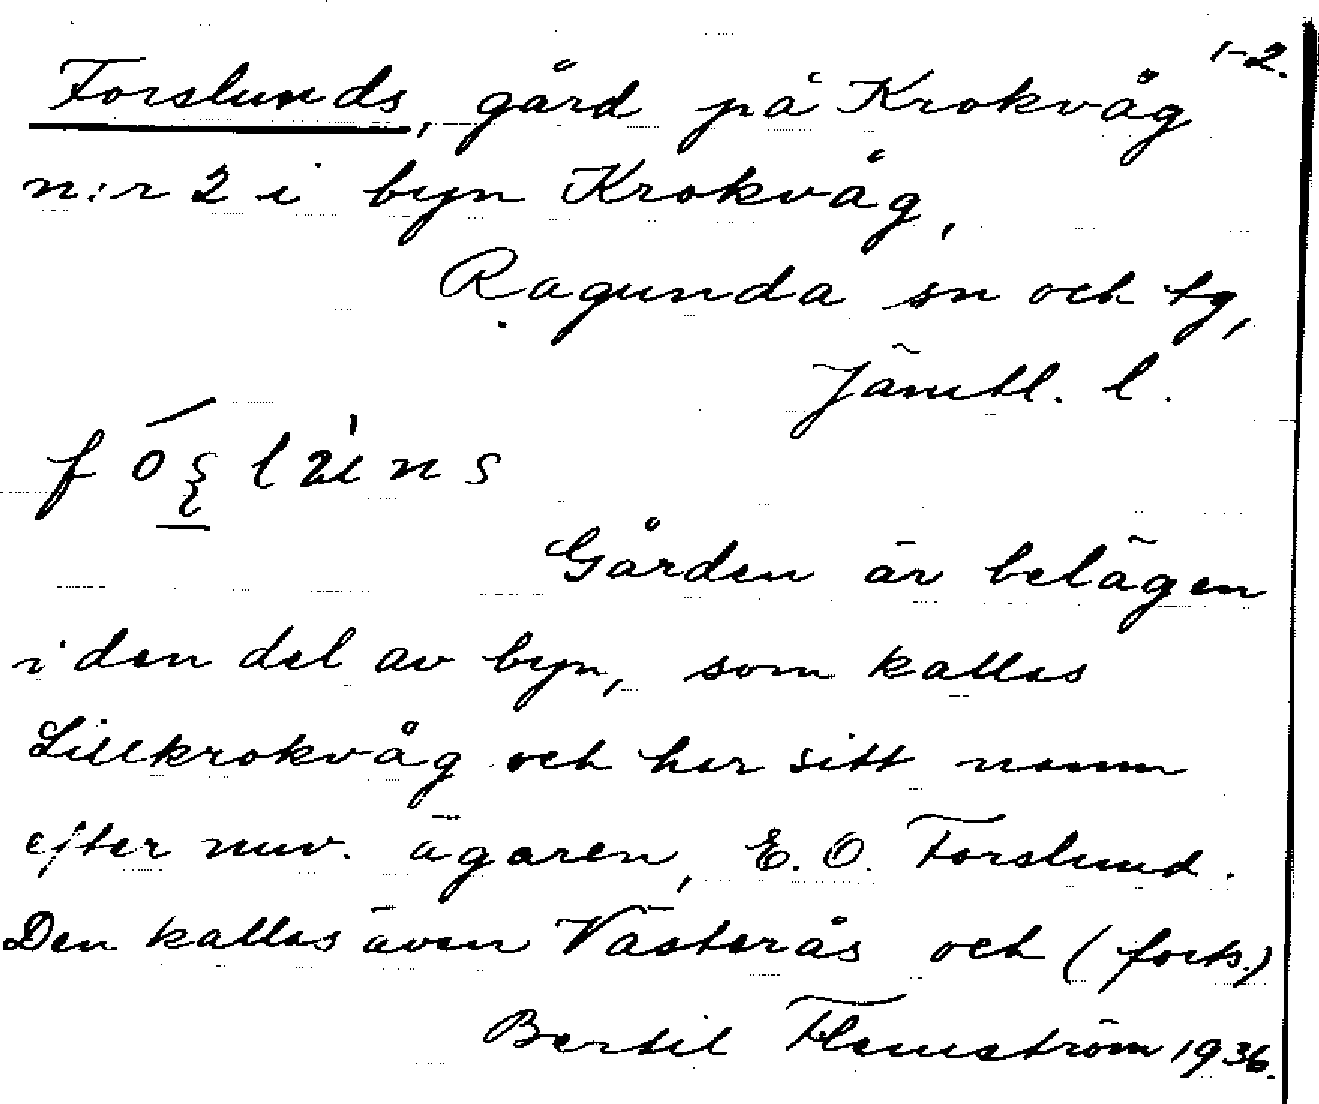 1-2.
Forslunds, gård på Krokvåg
n:r 2 i byn Krokvåg,
Ragunda sn och tg,
Jämtl. l.
Gården är belägen
i den del av byn, som kallas
Lillkrokvåg och har sitt namn
efter nuv. ägaren, E. O. Forslund.
Den kallas även Västerås och (forts.)
Bertil Flemström 1936.